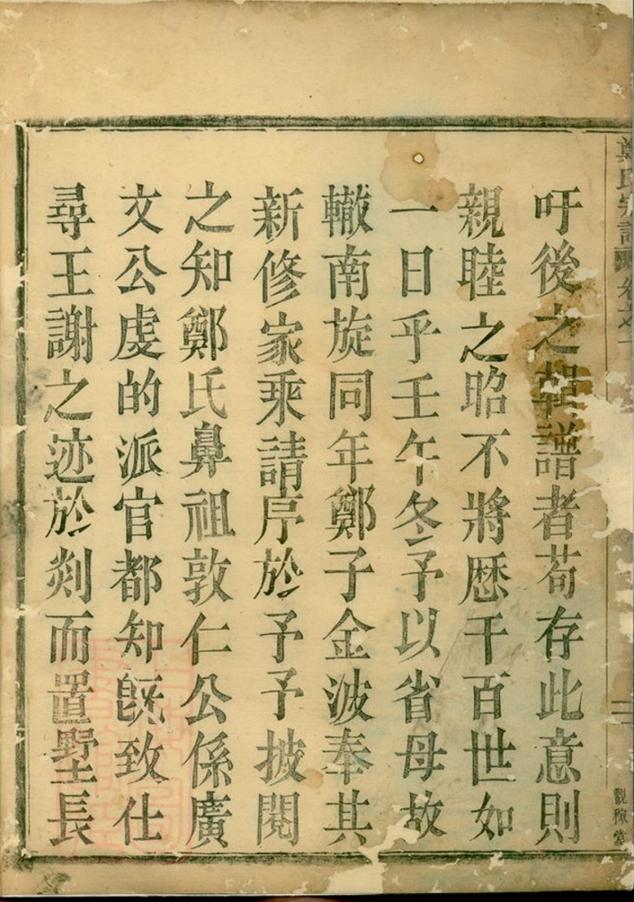 鄭氏宗譜 卷之一
觀稼堂
吁後之輯譜者苟存此意則
親睦之昭不將厯千百世如
一日乎壬午冬予以省母故
轍南旋同年鄭子金波奉其
新修家乘請序於予予披閱
之知鄭氏鼻祖敦仁公係廣
文公虔的派官都知旣致仕
尋王謝之迹於剡而置墅長